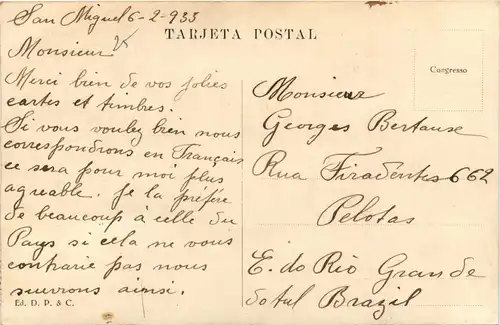 San Miguel 6-2-933
TARJETA POSTAL
Monsieur
Merci bien de vos jolies
cartes et timbres.
Si vous voulez bien nous
correspondrons en Français
ce sera pour moi plus
agreable. Je la préfére
de beaucoup à celle du
Pays si cela ne vous
contrarie pas nous
suivrons ainsi.
Ed. D. P. & C.
Congresso
Monsieur
Georges Bertause
Rua Firadentes 662
Pelotas
E. do Rio Grande
do Sul Brazil